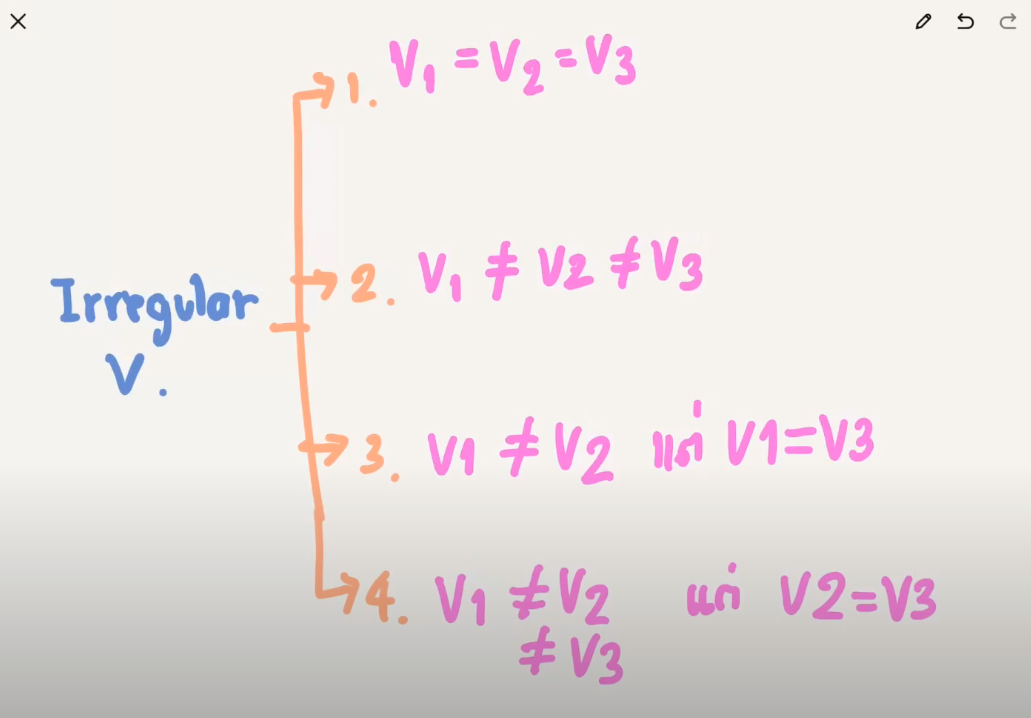 Irregular
V.
1. V1 = V2 = V3
2. V1 ≠ V2 ≠ V3
3. V1 ≠ V2 แต่ V1 = V3
4. V1 ≠ V2 แต่ V2 = V3
≠ V3